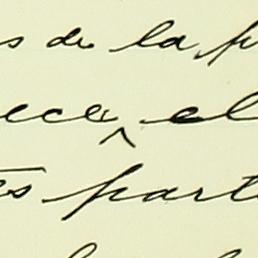 s de la p
ece el
es parte